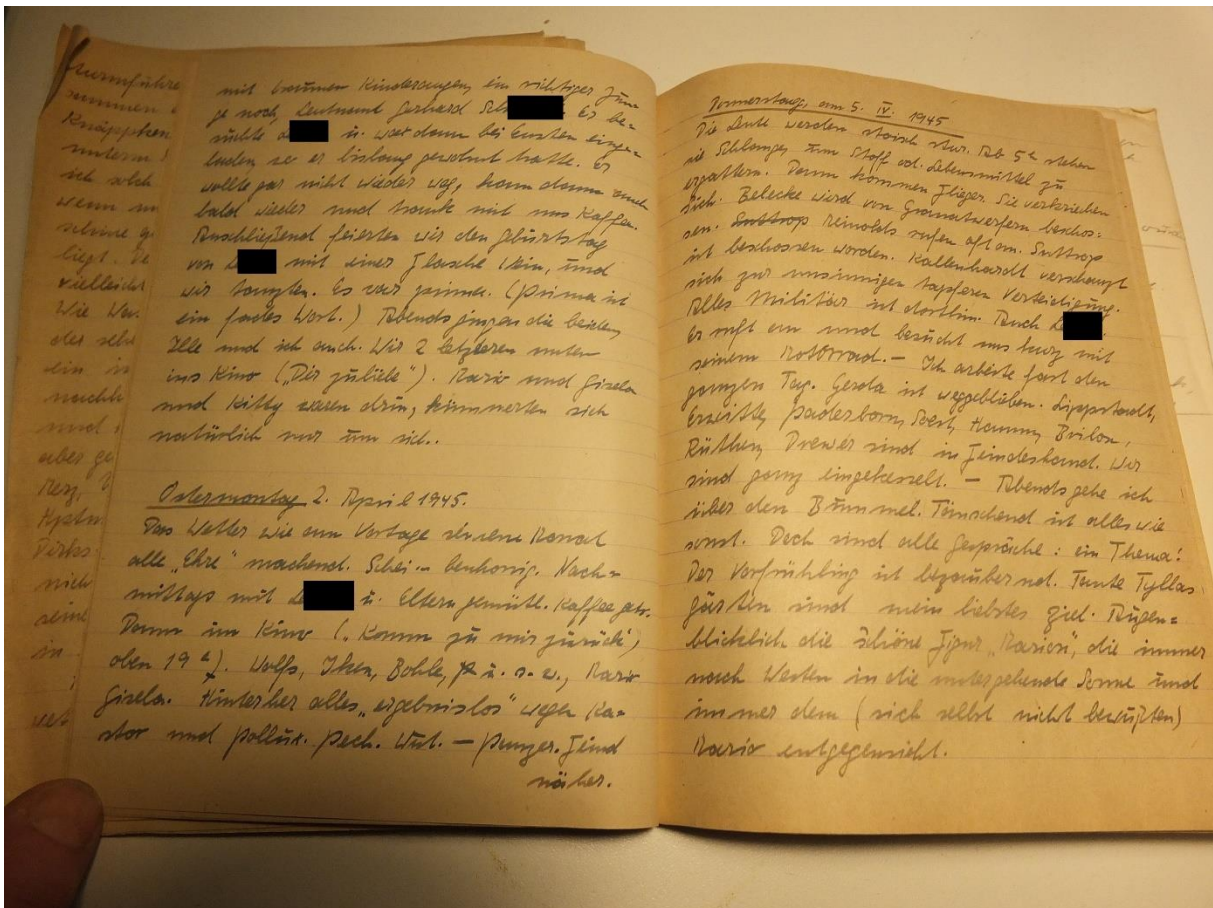 mit braunen Kinderaugen, ein richtiger Jun=
ge noch, Leutnant Gerhard Sch
Er be=
suchte
u. war dann bei
einge=
laden, wo er bislang gewohnt hatte. Er
wollte gar nicht wieder weg, kam dann auch
bald wieder und trank mit uns Kaffee.
Anschließend feierten wir den Geburtstag
von
mit einer Flasche Wein, und
wir tanzten. Es war prima. (Prima ist
ein fades Wort.) Abends gingen die beiden,
Ille und ich auch. Wir 2 letzteren unten
ins Kino („Dir zuliebe“). Mario und Gisela
und Kitty waren drin, kümmerten sich
natürlich nur um sich..
Ostermontag 2. April 1945.
Das Wetter wie am Vortage dem Monat
alle „Ehre“ machend. Schei.. Nach=
mittags mit
u. Eltern gemütl. Kaffee getr.
Dann im Kino („Komm zu mir zurück“,
oben 19 h). Wolfs, Iken, Bohle, u. s. w., Mario
Gisela. Hinterher alles „ergebnislos“ wegen Ka=
stor und Pollux. Pech. Wut. — Panzer. Feind
näher.
Donnerstag, am 5. IV. 1945
Die Leute werden stoisch stur. Ab 5 h stehen
sie Schlange, um Stoff od. Lebensmittel zu
ergattern. Dann kommen Flieger. Sie verkriechen
sich. Belecke wird von Granatwerfern beschos=
sen. Suttrop Reinolds rufen oft an. Suttrop
ist beschossen worden. Kallenhardt verschanzt
sich zur unsinnigen tapferen Verteidigung.
Alles Militär ist dorthin. Auch
Er ruft an und besucht uns kurz mit
seinem Motorrad. — Ich arbeite fast den
ganzen Tag. Gerda ist weggeblieben. Lippstadt,
Erwitte, Paderborn, Soest, Hamm, Brilon,
Rüthen, Drewer sind in Feindeshand. Wir
sind ganz eingekesselt. — Abends gehe ich
über den Bummel. Täuschend ist alles wie
sonst. Doch sind alle Gespräche: ein Thema!
Der Vorfrühling ist bezaubernd. Tante Tyllas
Garten und mein liebstes Ziel. Augen=
blicklich die schöne Figur „Marion“, die immer
nach Westen in die untergehende Sonne und
immer dem (sich selbst nicht bewußten)
Mario entgegensieht.